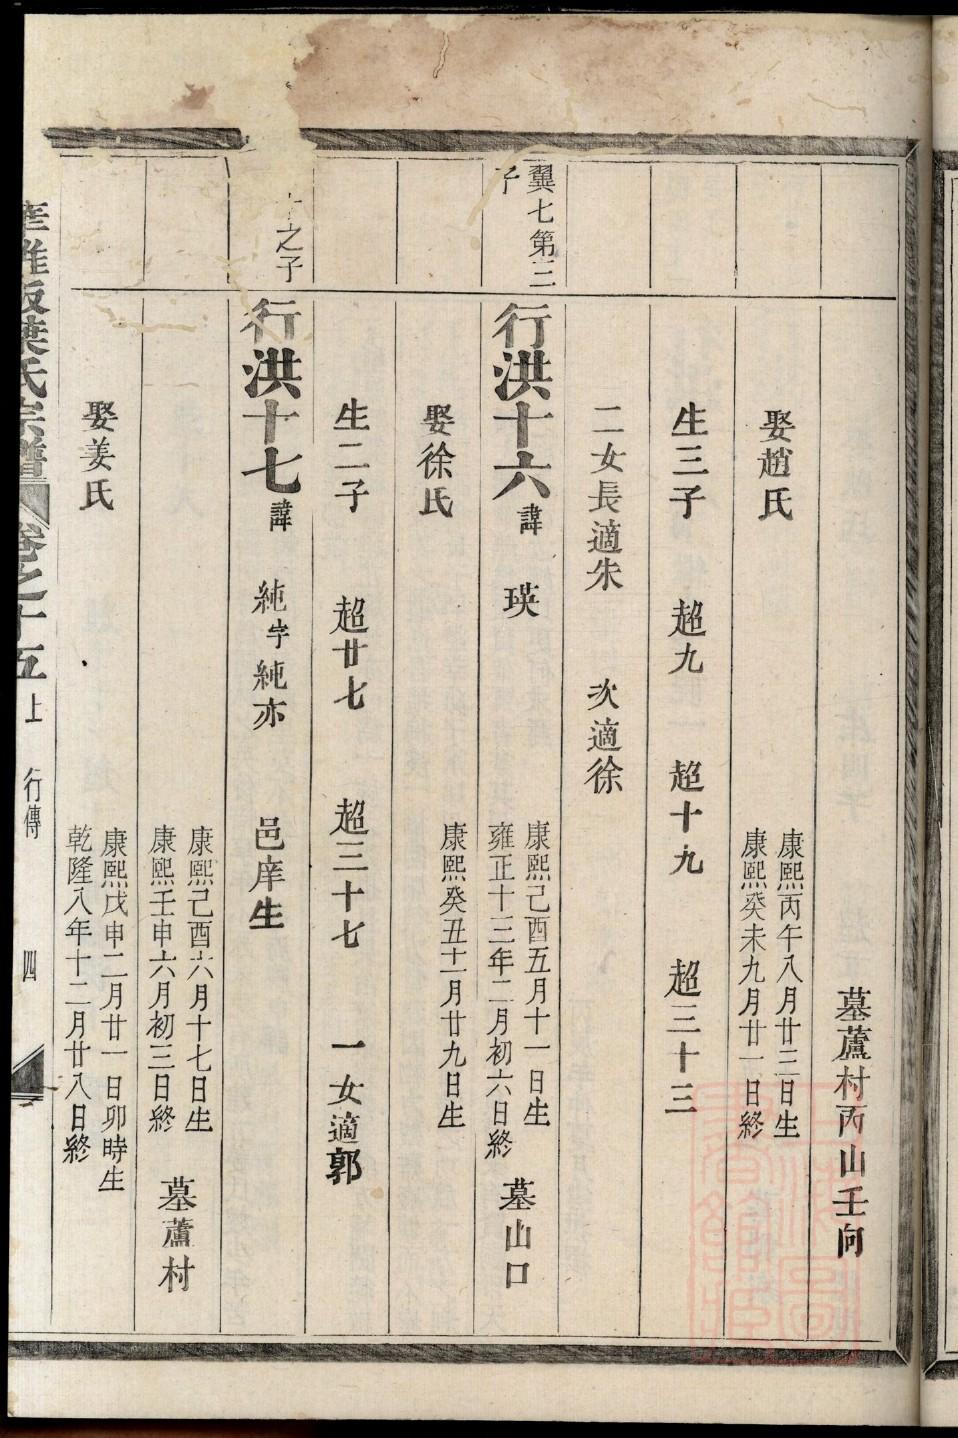 墓蘆村丙山壬向
娶趙氏
康熙丙午八月廿三日生
康熙癸未九月廿一日終
生三子 超九 超十九 超三十三
二女長適朱 次適徐
翼七第三
子
行洪十六諱 瑛
康熙己酉五月十一日生
雍正十三年二月初六日終
墓山口
娶徐氏
康熙癸丑十一月廿九日生
生二子 超廿七 超三十七 一女適郭
之子
行洪十七諱 純字純亦 邑庠生
康熙己酉六月十七日生
康熙壬申六月初三日終
墓蘆村
娶姜氏
康熙戊申二月廿一日卯時生
乾隆八年十二月廿八日終
葉氏宗譜 卷之十五 上 行傳 四